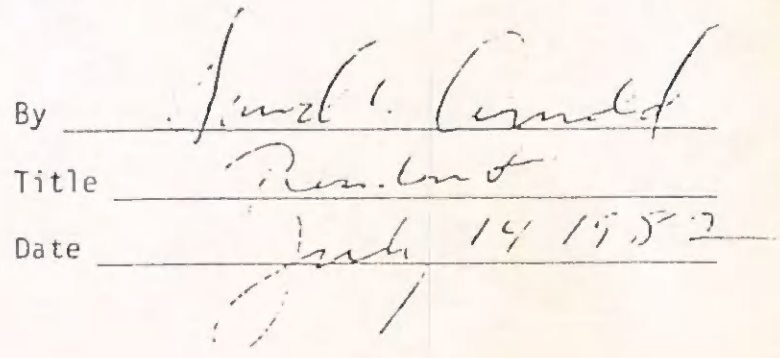 By
Title President
Date July 14 1952